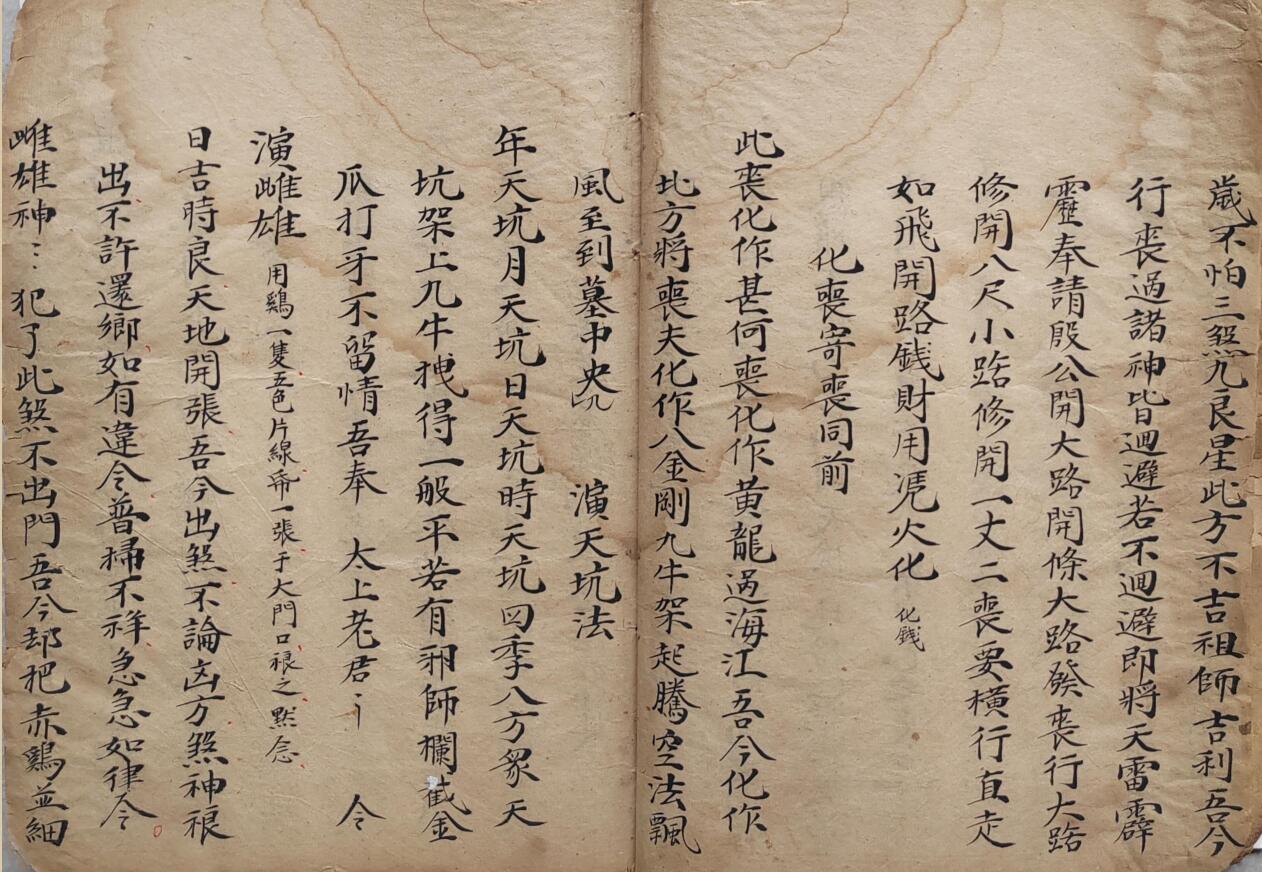 歲不怕三煞九良星此方不吉祖師吉利吾今
行喪過諸神皆迴避若不迴避即將天雷霹
靂奉請殷公開大路開條大路發喪行大路
修開八尺小路修開一丈二喪要橫行直走
如飛開路錢財用凴火化 化錢
化喪寄喪同前
此喪化作甚何喪化作黃龍過海江吾今化作
北方將喪夫化作八金剛九牛架起騰空法飄
風至到墓中央 演天坑法
年天坑月天坑日天坑時天坑四季八方眾天
坑架上九牛拽得一般平若有邪師欄截金
瓜打牙不留情吾奉 太上老君 令
演雌雄 用鷄一隻五色片線帋一張于大門口祿之黙念
日吉時良天地開張吾今出煞不論凶方煞神祿
出不許還鄉如有違令普掃不祥急急如律令
雌雄神〻犯了此煞不出門吾今却把赤鷄並細